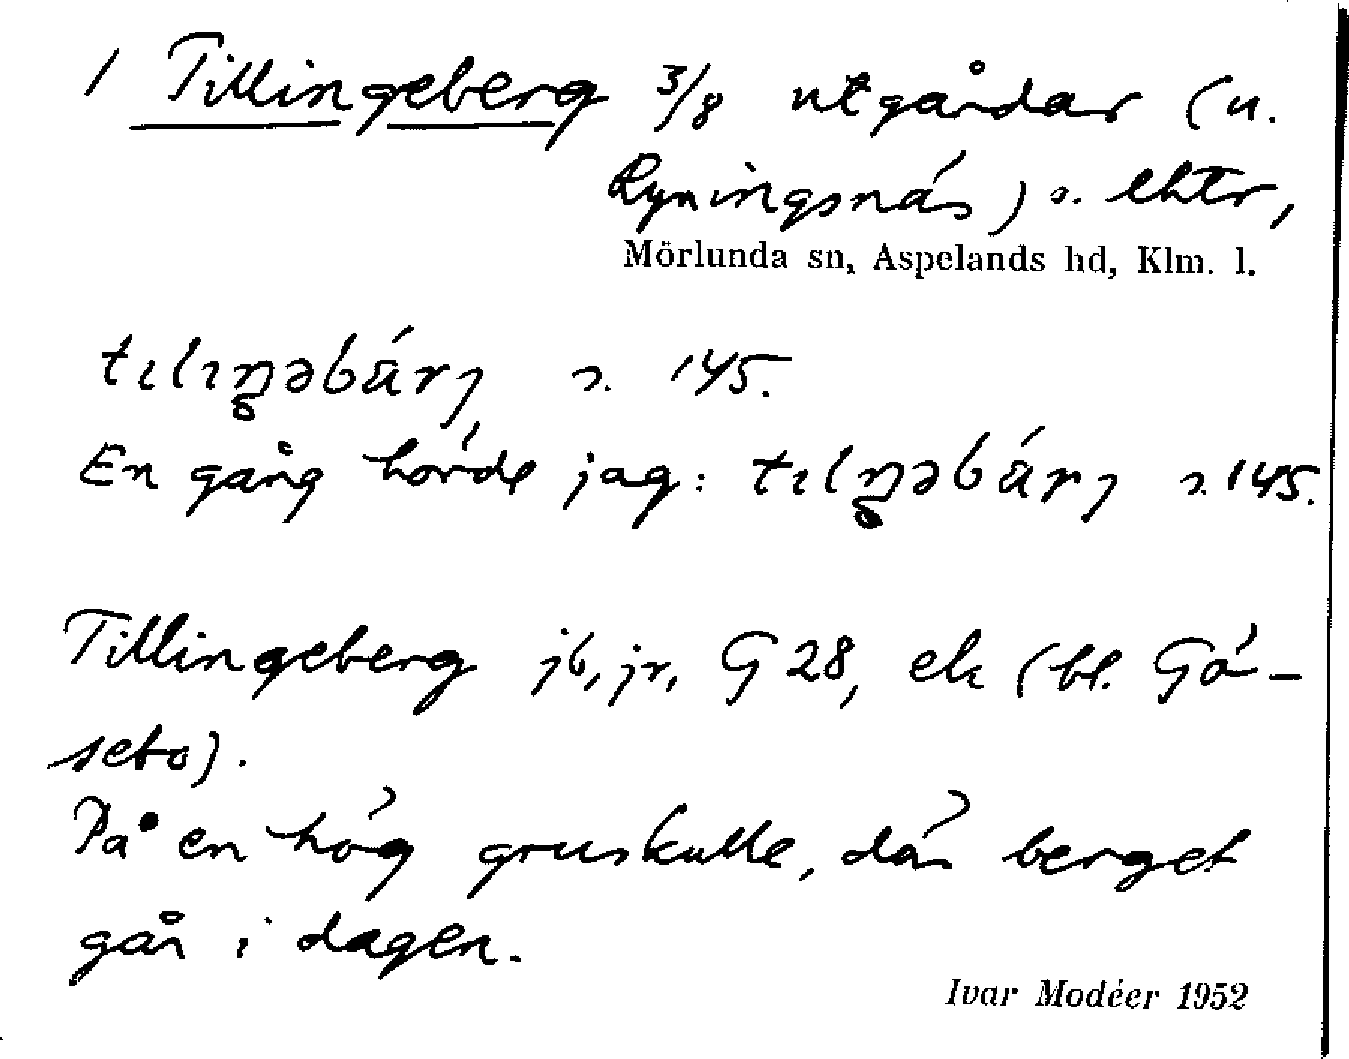 1 Tillingeberg 3/8 utgårdar (u.
Ryningsnäs) o. ehtr,
Mörlunda sn, Aspelands hd, Klm. l.
145.
En gång hörde jag: 145.
Tillingeberg jb, jr, G 28, ek (bl. Gö-
sebo).
På en hög gruskulle, där berget
går i dagen.
Ivar Modéer 1952